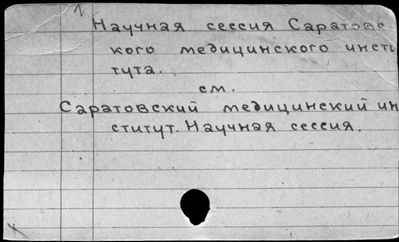 Научная сессия Саратовс
кого медицинского инсти
тута.
см.
Саратовский медицинский ин
ститут. Научная сессия.